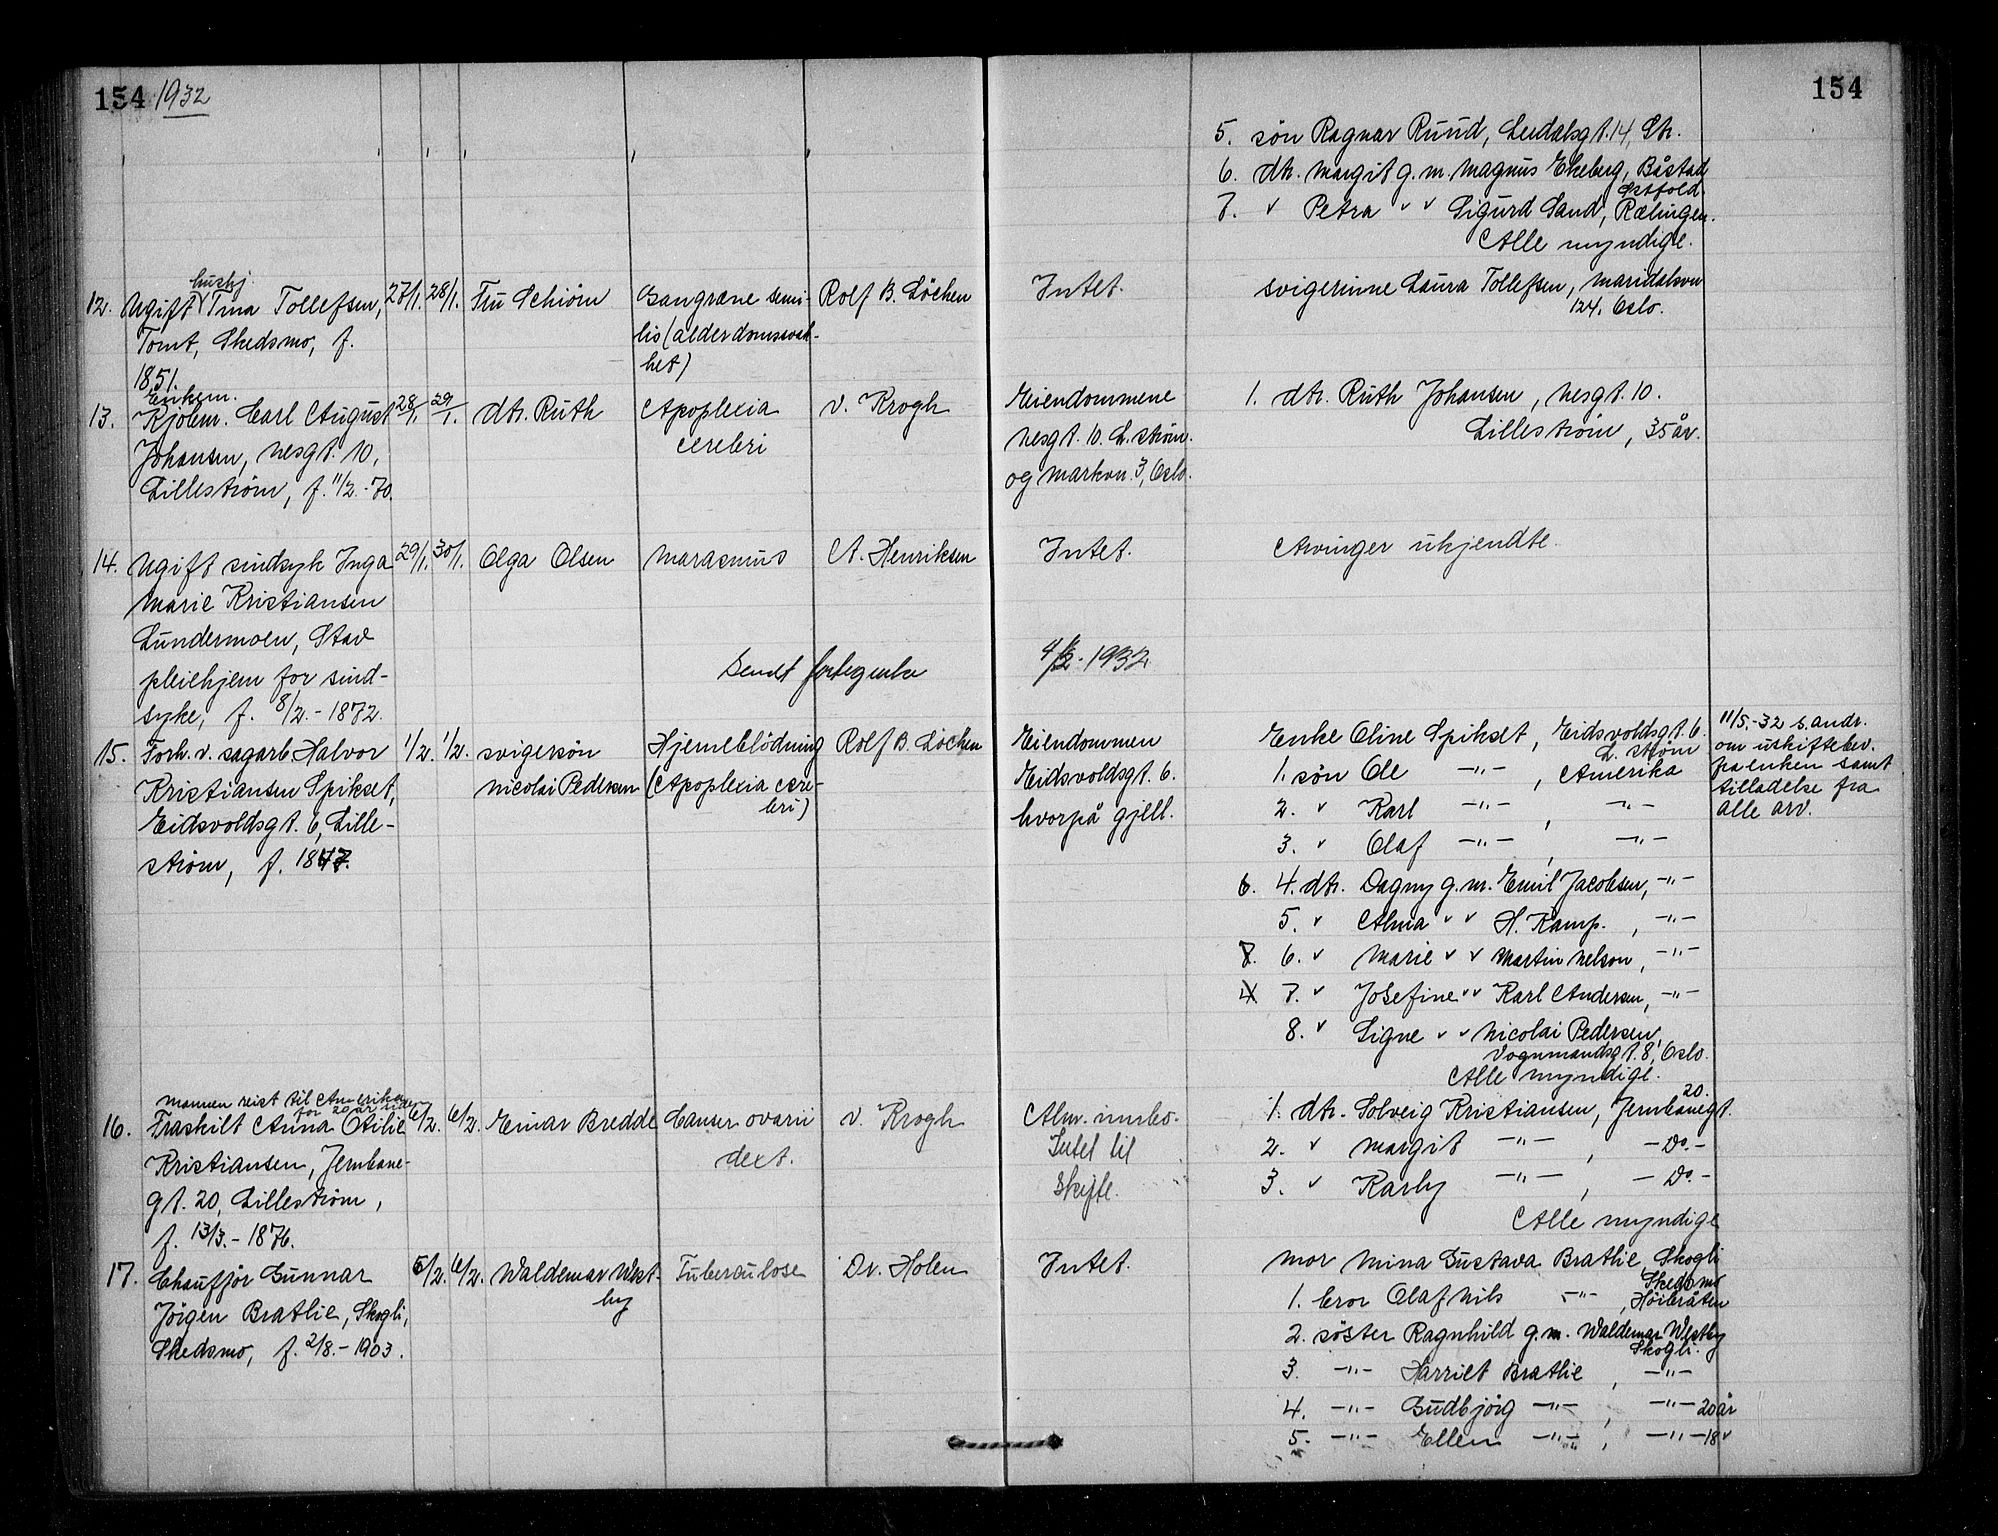 154 1932
154
5. søn Ragnar Ruud, 14, Str.
6. dtr. Margit g.m. Magnus Ekeberg, Båstad
Østfold.
7. " Petra " " Sigurd Sand, Rælingen.
Alle myndige.
hushj.
12. Ugift Tina Tollefsen,
Tomt, Skedsmo, f.
1851.
27/1. 28/1. Fru Schiøm
Gangræne seni-
lis (alderdomssvak-
het)
Rolf B. Löchen
Intet.
svigerinne Laura Tollefsen, Maridalsvn
124. Oslo.
Enkem.
13. Kjølem. Carl August
Johansen, Nesgt. 10,
Lillestrøm, f. 11/2.-70.
28/1. 29/1. dtr. Ruth
Apoplexia
cerebri
v. Krogh
Eiendommene
Nesgt. 10. L.strøm.
og Markvn. 3, Oslo.
1. dtr. Ruth Johansen, Nesgt. 10.
Lillestrøm, 35 år.
14. Ugift sindsyk Inga
Marie Kristiansen
Lundermoen, Stav
pleiehjem for sind-
syke, f. 8/2.-1872.
29/1. 30/1. Olga Olsen
Marasmus
A. Henriksen
Intet.
Arvinger ukjendte.
Sendt fortegnelse
4/2.-1932
15. Forh. v. sagarb. Halvor
Kristiansen Spikset,
Eidsvoldsgt. 6, Lille-
strøm, f. 1847.
1/2. 1/2. svigersøn
Nicolai Pedersen
Hjerneblödning
(Apoplexia cere-
bri)
Rolf B. Löchen
Eiendommen
Eidsvoldsgt. 6.
hvorpå gjell.
Enke Oline Spikset, Eidsvoldsgt. 6.
L.strøm
1. søn Ole -"- , Amerika
2. " Karl -"- , -"-
3. " Olaf -"- , -"-
6. 4. dtr. Dagny g.m. Emil Jacobsen, -"-
5. " Alma " " H. Kamp. , -"-
7. 6. " Marie " " Martin Nelson, -"-
4 7. " Josefine " " Karl Andersen, -"-
8. " Signe " " Nicolai Pedersen,
Vognmandsgt. 8, Oslo.
Alle myndige.
11/5.-32 s. andr.
om uskiftebev.
fra enken samt
tilladelse fra
alle arv.
mannen reist til Amerika
for 20 år siden
16. Fraskilt Anna Otilie
Kristiansen, Jernbane-
gt. 20, Lillestrøm,
f. 13/3.-1876.
6/2. 6/2. Einar Bredde
Canser ovarii
dext.
v. Krogh
Alm. innbo.
Intet til
Skifte.
20.
1. dtr. Solveig Kristiansen, Jernbanegt.
2. " Margit -"- , - Do. -
3. " Karly -"- , - Do. -
Alle myndige
17. Chauffør Gunnar
Jörgen Brathie, Skogli,
Skedsmo, f. 2/8.-1903.
5/2. 6/2. Waldemar West-
by
Tuberculose
Dr. Holen
Intet.
mor Mina Gustava Brathie, Skogli
Skedsmo
1. bror Olaf Nils -"- , Höibråten
2. söster Ragnhild g.m. Waldemar Westby
Skogli.
3. -"- Harriet Brathie , -"-
4. -"- Gudbjörg -"- , -"- 20 år
5. -"- Ellen -"- , -"- 18 "